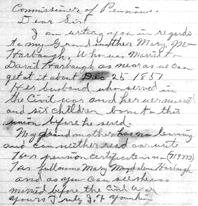 Commissioner of Pensions.
Dear Sir:
I am writing you in regards
to my Grand mother Mary M
Harbaugh, Who was Married
David Harbaugh as near as we can
get at it about Dec 25 1857
Her husband who served in
the Civil war and her were
and six Children born to this
union before he died.
My Grandmother has no learning
and can neither read nor write
Her pension certificate no
her full name Mary Magdalene Harbaugh
and as you see she was
married before the civil war
yours Truly